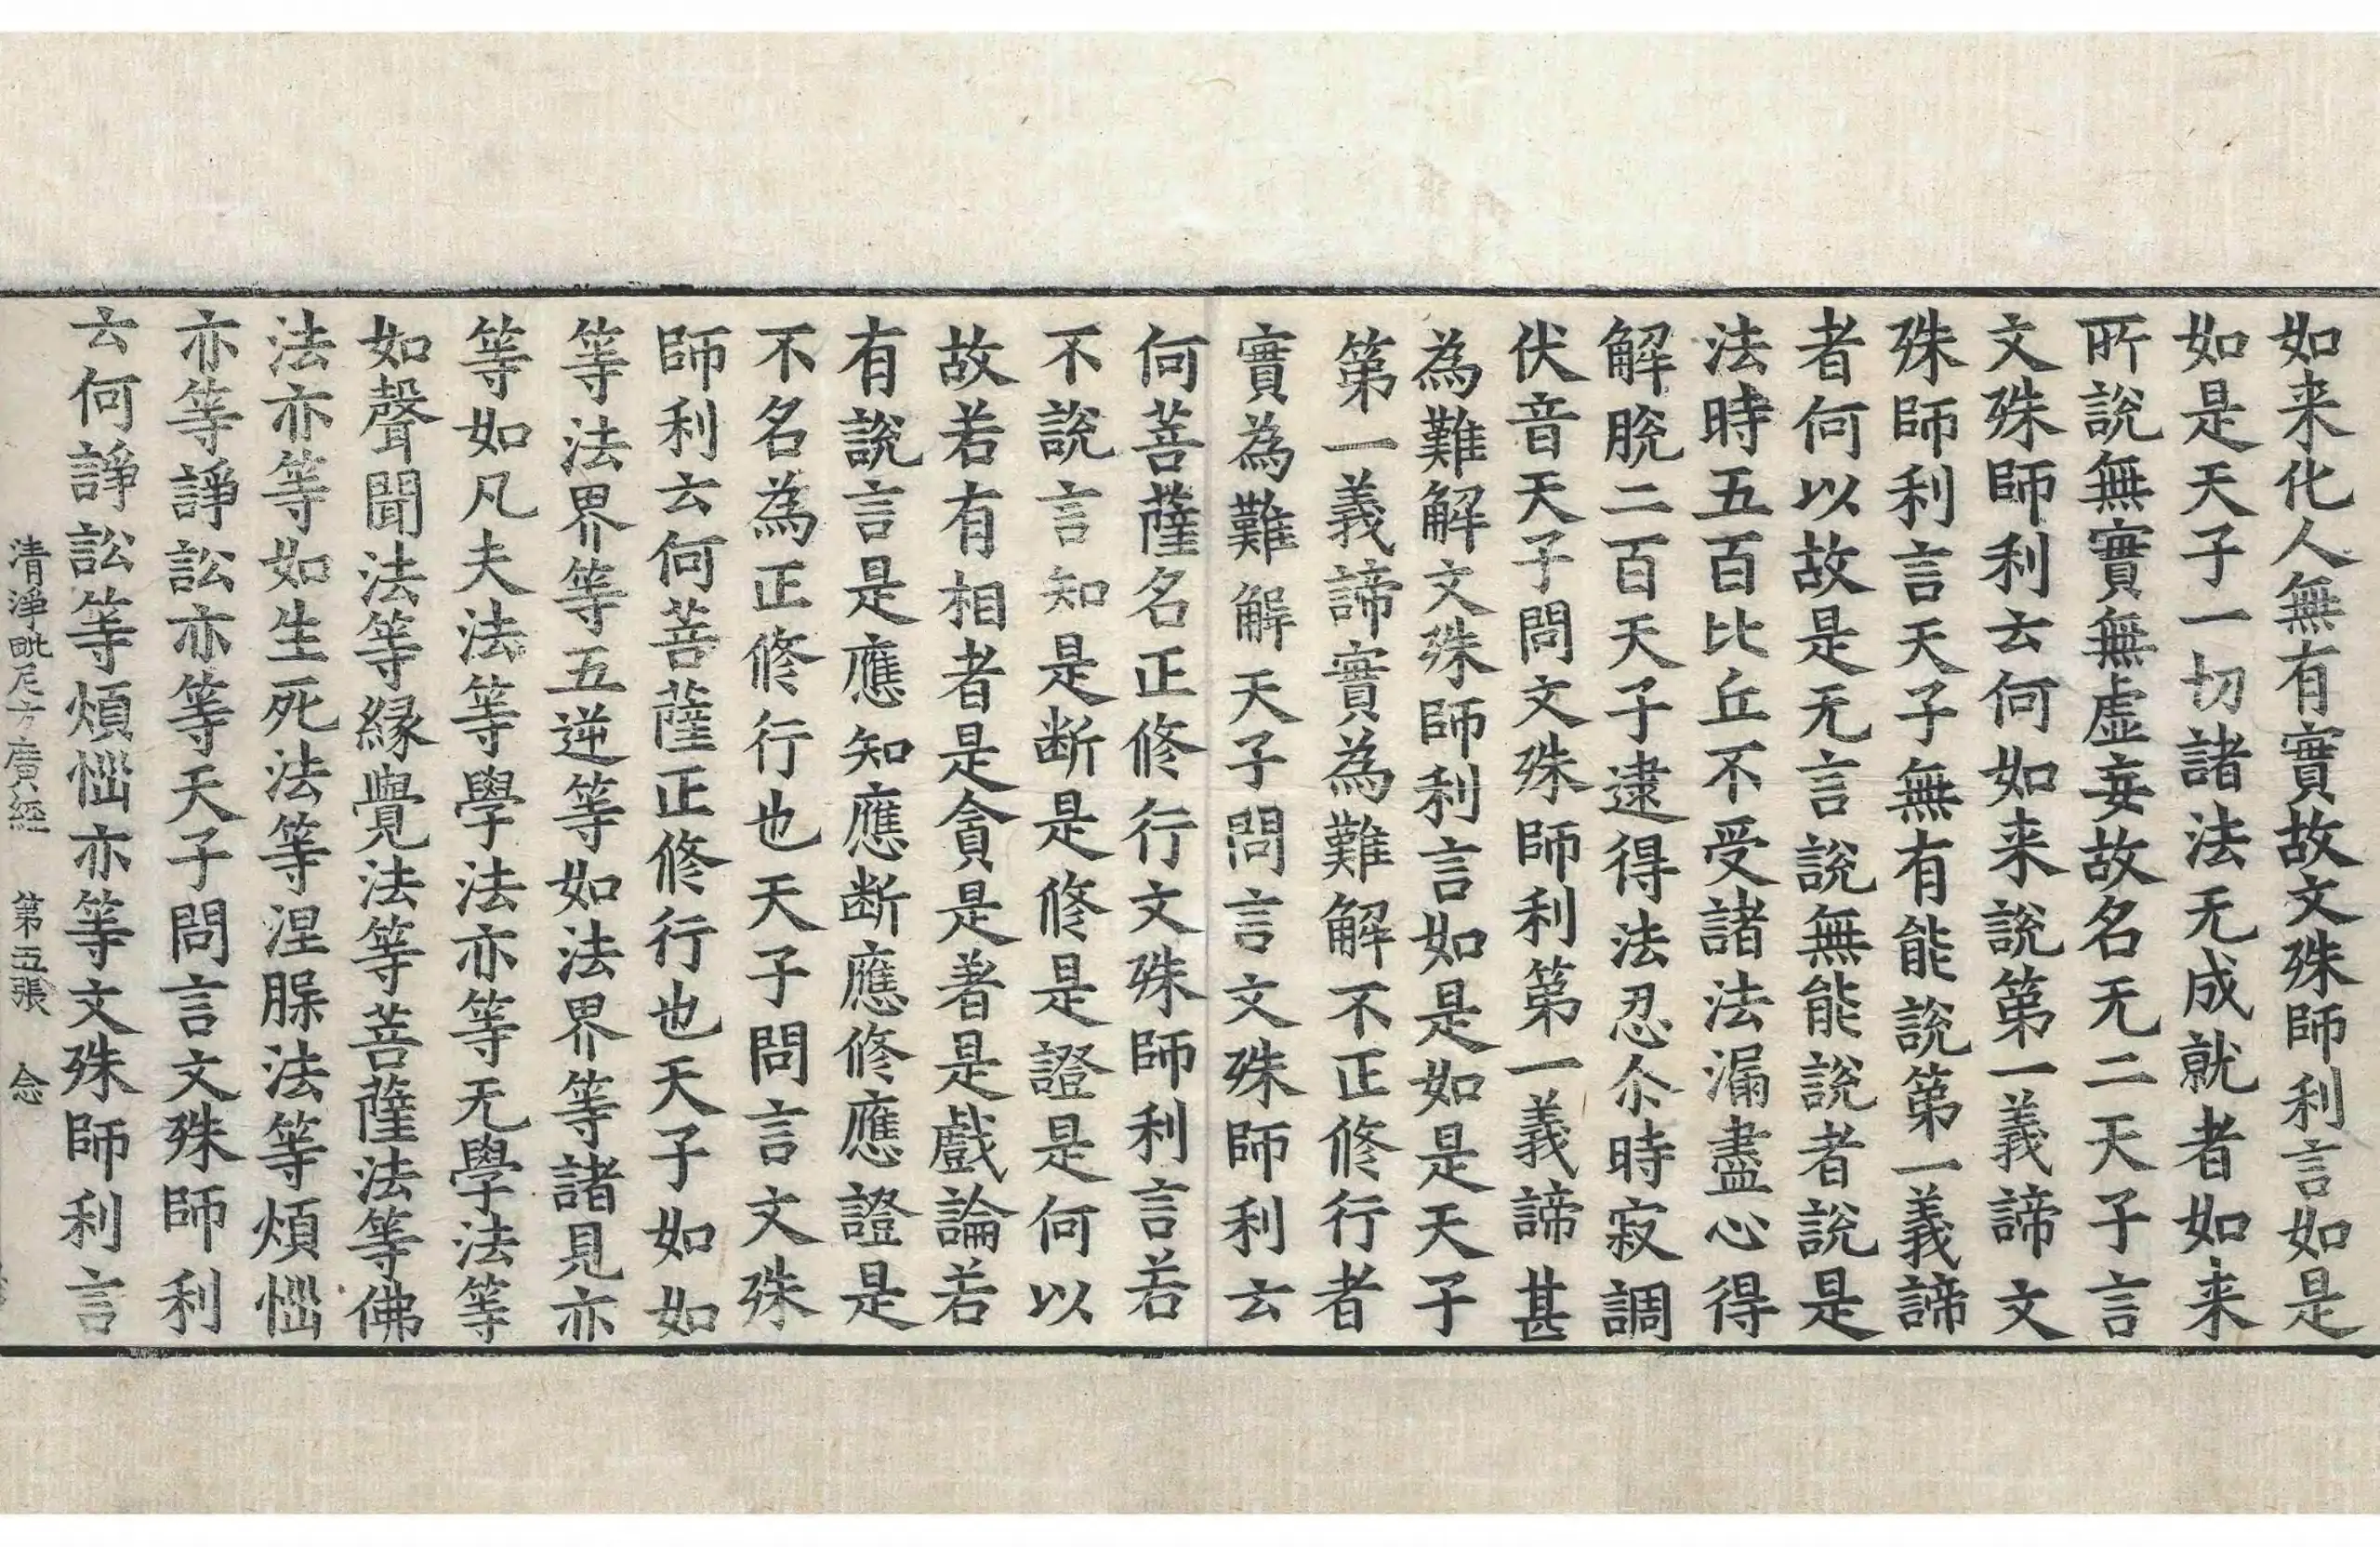 如来化人無有實故文殊師利言如是
如是天子一切諸法无成就者如来
所說無實無虛妄故名无二天子言
文殊師利云何如来說第一義諦文
殊師利言天子無有能說第一義諦
者何以故是无言說無能說者說是
法時五百比丘不受諸法漏盡心得
解脫二百天子逮得法忍尒時寂調
伏音天子問文殊師利第一義諦甚
為難解文殊師利言如是如是天子
第一義諦實為難解不正修行者
實為難解天子問言文殊師利云
何菩薩名正修行文殊師利言若
不說言知是断是修是證是何以
故若有相者是貪是著是戲論若
有說言是應知應断應修應證是
不名為正修行也天子問言文殊
師利云何菩薩正修行也天子如如
等法界等五逆等如法界等諸見亦
等如凡夫法等學法亦等无學法等
如聲聞法等緣覺法等菩薩法等佛
法亦等如生死法等涅槃法等煩惱
亦等諍訟亦等天子問言文殊師利
云何諍訟等煩惱亦等文殊師利言
清淨毗尼方廣經 第五張 念